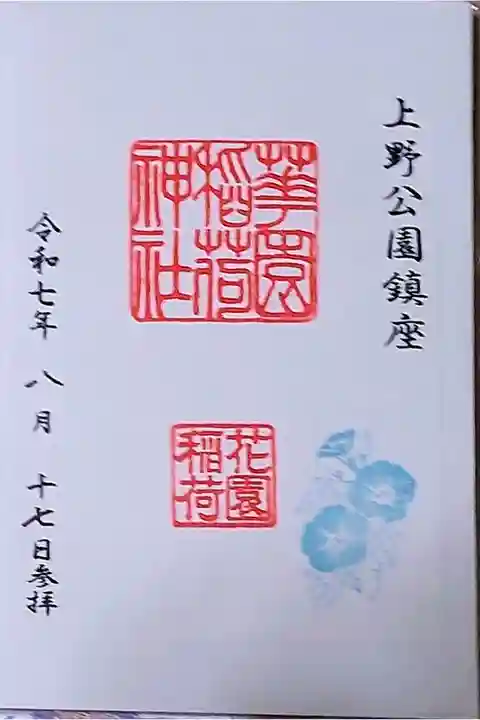 上野公園鎮座
華園
稲荷
神社
花園
稲荷
令和七年 八月 十七日参拝